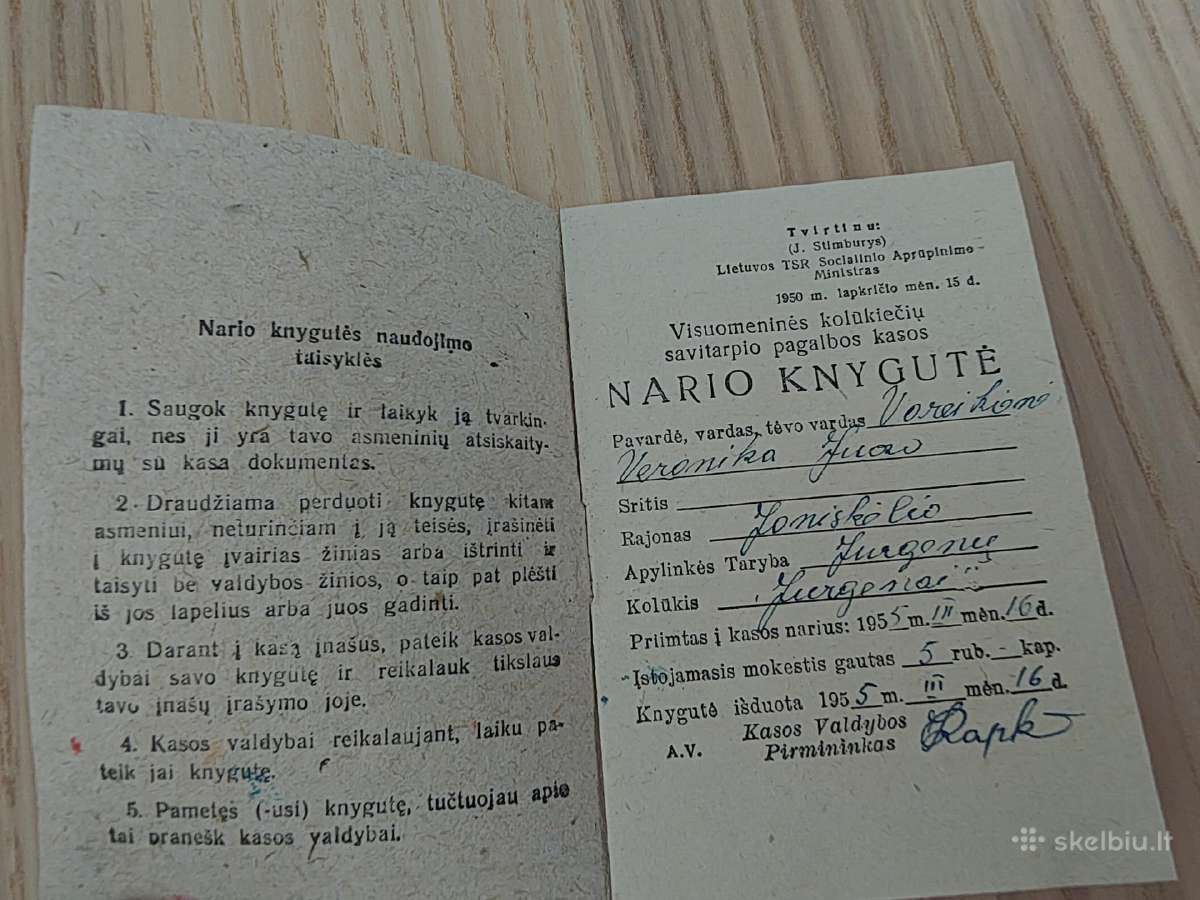 Nario knygutės naudojimo
taisyklės
1. Saugok knygutę ir laikyk ją tvarkin-
gai, nes ji yra tavo asmeninių atsiskaity-
mų su kasa dokumentas.
2. Draudžiama perduoti knygutę kitam
asmeniui, neturinčiam į ją teisės, įrašinėti
į knygutę įvairias žinias arba ištrinti ir
taisyti be valdybos žinios, o taip pat plėšti
iš jos lapelius arba juos gadinti.
3. Darant į kasą įnašus, pateik kasos val-
dybai savo knygutę ir reikalauk tikslaus
tavo įnašų įrašymo joje.
4. Kasos valdybai reikalaujant, laiku pa-
teik jai knygutę.
5. Pametęs (-usi) knygutę, tučtuojau apie
tai pranešk kasos valdybai.
Tvirtinu:
(J. Stimburys)
Lietuvos TSR Socialinio Aprūpinimo
Ministras
1950 m. lapkričio mėn. 15 d.
Visuomeninės kolūkiečių
savitarpio pagalbos kasos
NARIO KNYGUTĖ
Pavardė, vardas, tėvo vardas Vareikienė
Veronika Juozo
Sritis
Rajonas Joniškėlio
Apylinkės Taryba Jurgėnų
Kolūkis „Jurgėnai"
Priimtas į kasos narius: 1955 m. III mėn. 16 d.
Įstojamasis mokestis gautas 5 rub. - kap.
Knygutė išduota 1955 m. III mėn. 16 d.
Kasos Valdybos
A.V. Pirmininkas
skelbiu.lt